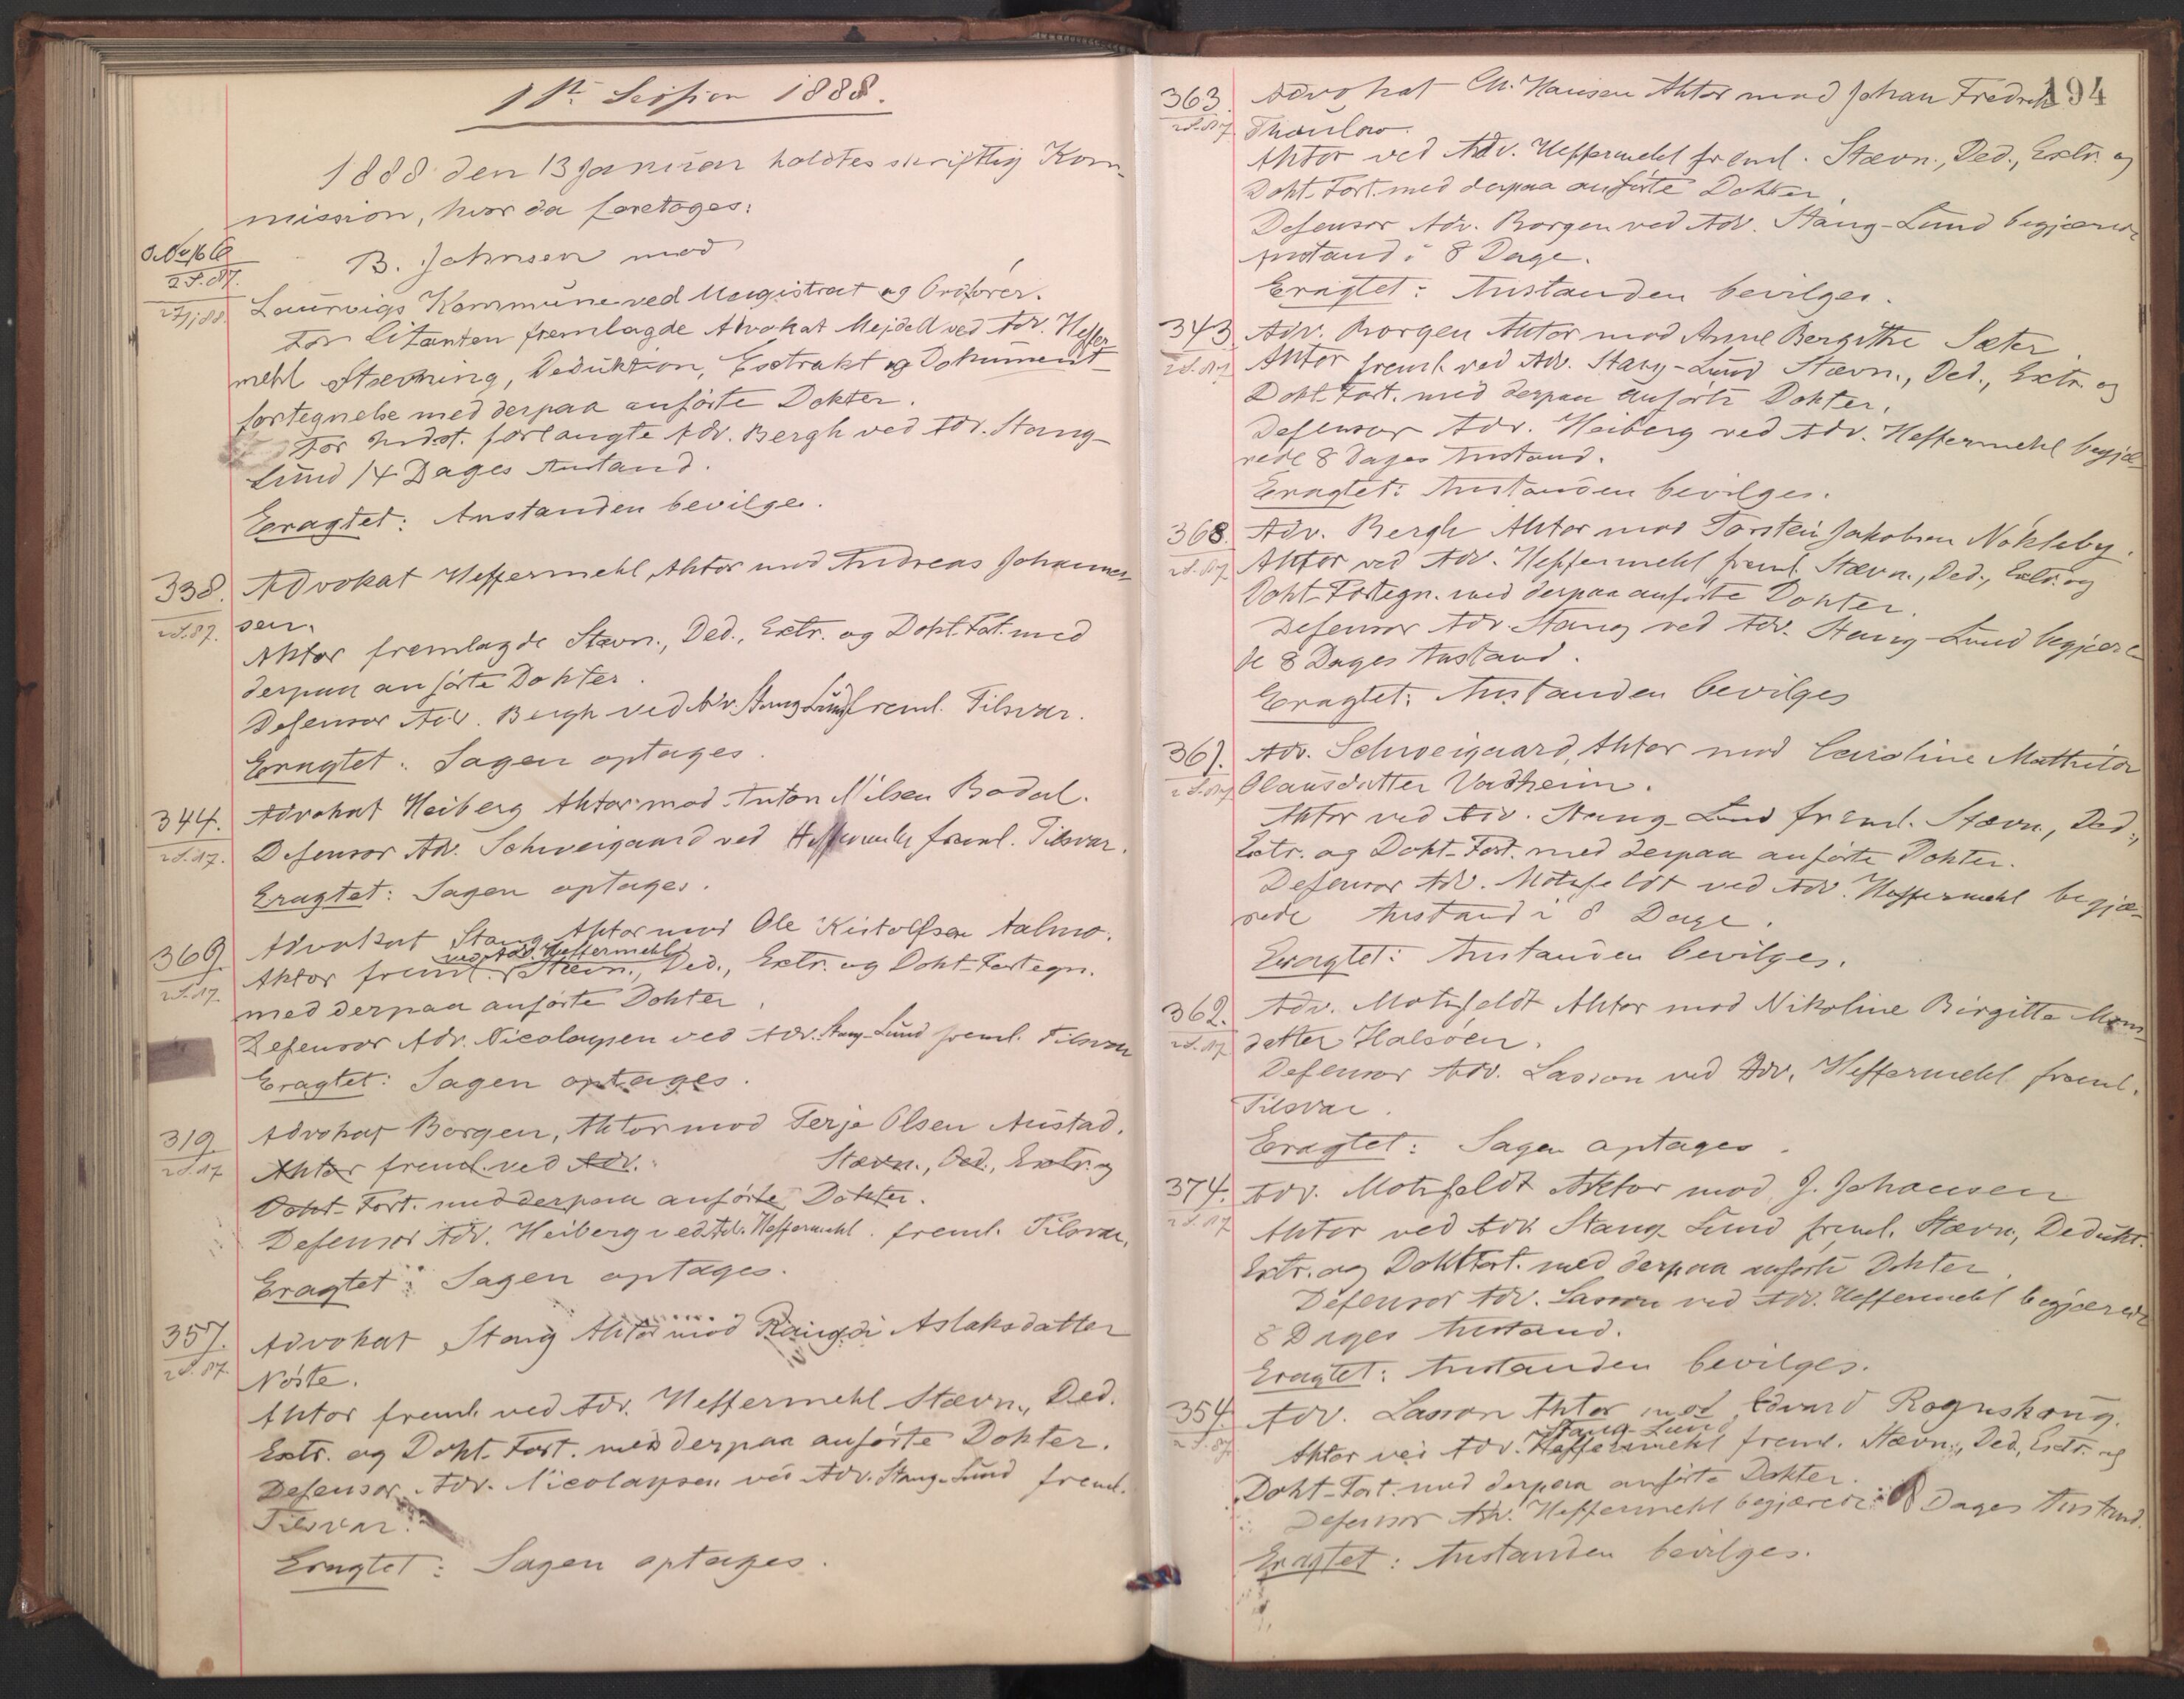 1ste Session 1888.
1888 den 13 Januar holdtes skriftlig Kom-
mission, hvor da foretoges:
O. No 166
2 S. 87.
B. Johnsen mod
Laurvigs Kommune ved Magistrat og Ordfører.
For Citanten fremlagde Advokat Mejdell ved Adv. Heffer-
mehl Stævning, Deduktion, Extrakt og Dokument-
fortegnelse med derpaa anførte Dokter.
For Indst. forlangte Adv. Bergh ved Adv. Stang-
Lund 14 Dages Anstand.
Eragtet: Anstanden bevilges.
338. Advokat Heffermehl Aktor mod Andreas Johannes-
2 S. 87. sen.
Aktor fremlagde Stævn., Ded., Extr. og Dokt. Fort. med
derpaa anførte Dokter.
Defensor Adv. Bergh ved Adv. Stang Lund freml. Tilsvar.
Eragtet: Sagen optages.
344. Advokat Heiberg Aktor mod Anton Nilsen Bodal.
2 S. 87. Defensor Adv. Schweigaard ved Heffermehl freml. Tilsvar.
Eragtet: Sagen optages.
369. Advokat Stang Aktor mod Ole Kistolfsen Aalmo.
ved Adv. Heffermehl
2 S. 87. Aktor freml. Stævn., Ded., Extr. og Dokt-Fortegn.
med derpaa anførte Dokter.
Defensor Adv. Nicolaysen ved Adv. Stang-Lund freml. Tilsvar
Eragtet: Sagen optages.
319. Advokat Borgen, Aktor mod Terje Olsen Austad.
2 S. 87 Aktor freml. ved Adv. Stævn., Ded., Extr. og
Dokt-Fort. med derpaa anførte Dokter.
Defensor Adv. Heiberg ved Adv. Heffermehl freml. Tilsvar.
Eragtet: Sagen optages.
357. Advokat Stang Aktor mod Aslaksdatter
2 S. 87. Nöste.
Aktor freml. ved Adv. Heffermehl Stævn., Ded.
Extr. og Dokt-Fort. med derpaa anførte Dokter.
Defensor Adv. Nicolaysen ved Adv. Stang-Lund freml.
Tilsvar.
Eragtet: Sagen optages.
194
363. Advokat Ch. Hansen Aktor mod Johan Fredrik
2 S. 87 Thaulow.
Aktor ved Adv. Heffermehl freml. Stævn., Ded., Extr. og
Dokt-Fort. med derpaa anførte Dokter
Defensor Adv. Borgen ved Adv. Stang-Lund begjærede
Anstand i 8 Dage.
Eragtet: Anstanden bevilges.
343 Adv. Borgen Aktor mod Anne Bergitte Sæter
2 S. 87 Aktor freml. ved Adv. Stang-Lund Stævn., Ded., Extr. og
Dokt-Fort. med derpaa anførte Dokter.
Defensor Adv. Heiberg ved Adv. Heffermehl begjæ-
rede 8 Dages Anstand.
Eragtet: Anstanden bevilges.
368. Adv. Bergh Aktor mod Torstein Jakobsen Nökleby.
2 S. 87 Aktor ved Adv. Heffermehl freml. Stævn., Ded., Extr. og
Dokt-Fortegn. med derpaa anførte Dokter.
Defensor Adv. Stang ved Adv. Stang-Lund begjære-
de 8 Dages Anstand.
Eragtet: Anstanden bevilges
367. Adv. Schweigaard, Aktor mod Caroline Mathilde
2 S. 87 Olausdatter Vadheim.
Aktor ved Adv. Stang-Lund freml. Stævn., Ded.,
Extr. og Dokt-Fort. med derpaa anførte Dokter.
Defensor Adv. Motzfeldt ved Adv. Heffermehl begjæ-
rede Anstand i 8 Dage.
Eragtet: Anstanden bevilges.
362. Adv. Motzfeldt Aktor mod Nikoline Birgitte Mons-
2 S. 87 datter Halsöen.
Defensor Adv. Lasson ved Adv. Heffermehl freml.
Tilsvar.
Eragtet: Sagen optages.
374. Adv. Motzfeldt Aktor mod J. Johansen
2 S. 87 Aktor ved Adv. Stang-Lund freml. Stævn., Dedukt.
Extr. og Dokt. Fort. med derpaa anførte Dokter
Defensor Adv. Lasson ved Adv. Heffermehl begjærede
8 Dages Anstand.
Eragtet: Anstanden bevilges.
354. Adv. Lasson Aktor mod Edvard Rognskoug.
Stang-Lund
2 S. 87. Aktor ved Adv. Heffermehl freml. Stævn., Ded., Extr. og
Dokt-Fort. med derpaa anførte Dokter.
Defensor Adv. Heffermehl begjærede 8 Dages Anstand.
Eragtet: Anstanden bevilges.